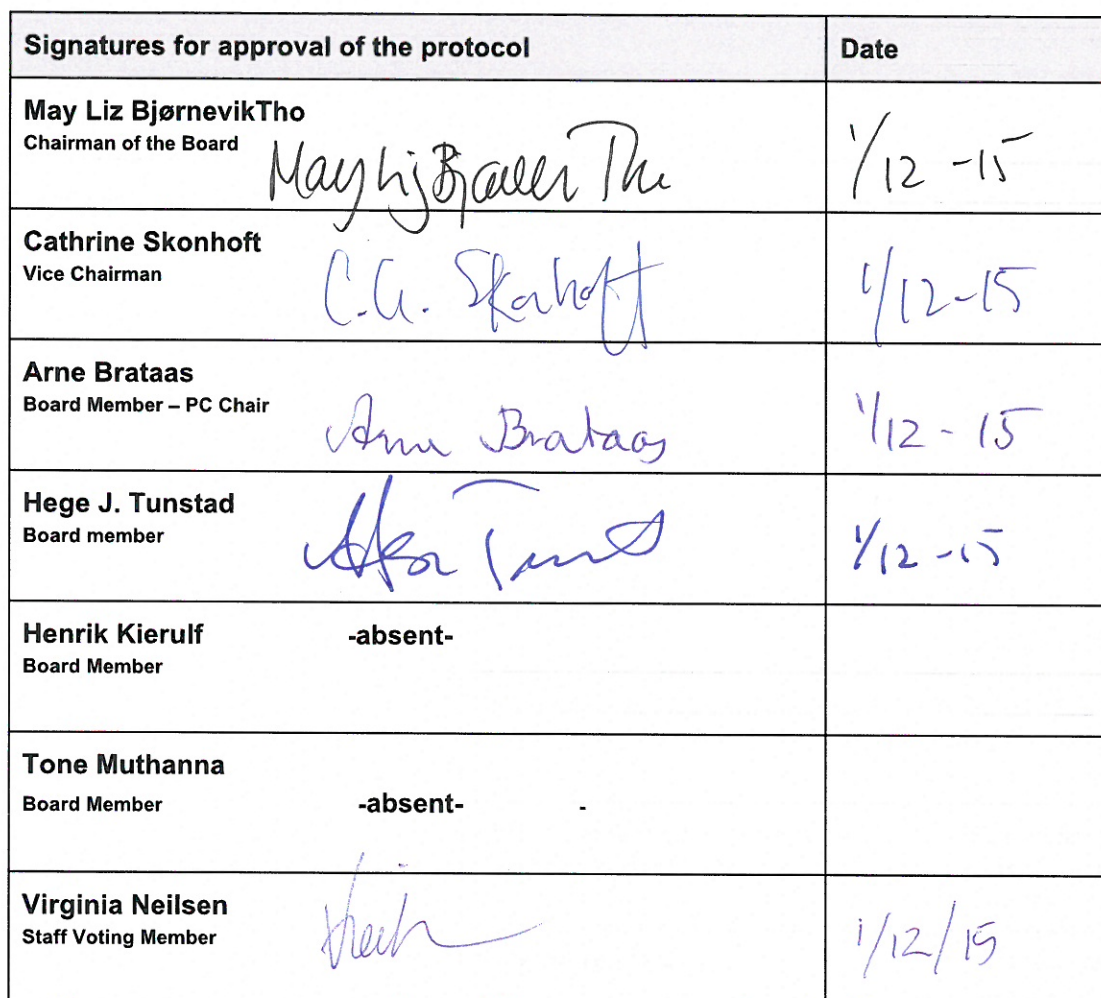 Signatures for approval of the protocol Date
May Liz BjørnevikTho
Chairman of the Board
May Liz Bj Tho 1/12 -15
Cathrine Skonhoft
Vice Chairman
C.A. Skonhoft 1/12-15
Arne Brataas
Board Member – PC Chair
Arne Brataas 1/12 - 15
Hege J. Tunstad
Board member
1/12 -15
Henrik Kierulf -absent-
Board Member
Tone Muthanna
Board Member -absent- -
Virginia Neilsen
Staff Voting Member
1/12/15